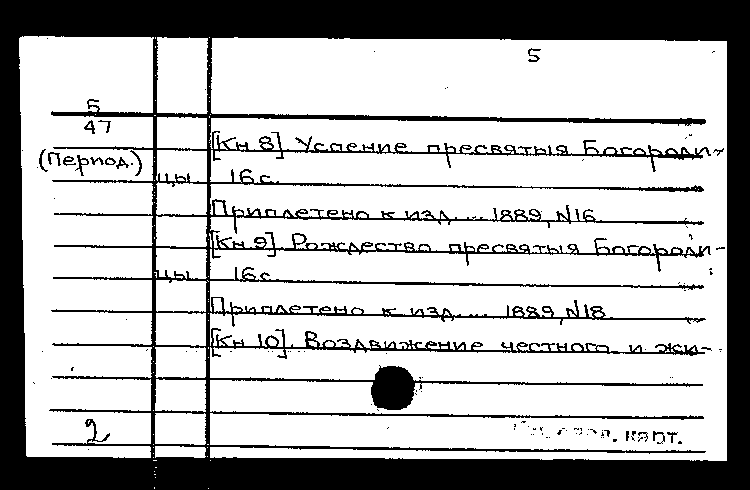 5
Б
47
(Период.)
[Кн 8]. Успение пресвятыя Богороди-
цы. 16 с.
Приплетено к изд. ... 1889, №16.
[Кн 9]. Рождество пресвятыя Богороди-
цы. 16 с.
Приплетено к изд. ... 1889, №18.
[Кн 10]. Воздвижение честного и жи-
2
карт.